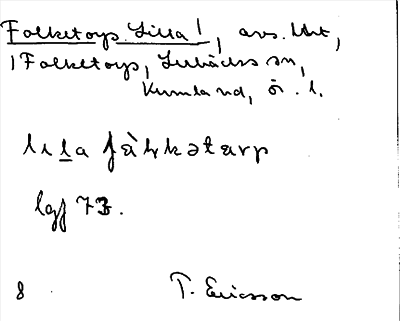 Folketorp Lilla, avs. lht,
i Folketorp, Lerbäcks sn,
Kumlands, ö. l.
lila fàlkətarp
lgf 73.
8 T. Ericsson